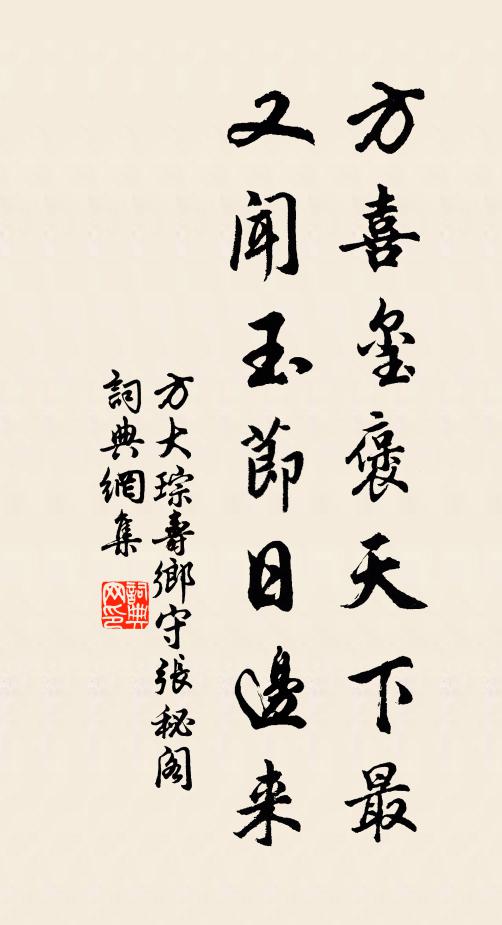 方喜玺褒天下最
又闻玉節日邊来
方大琮壽鄉守張秘阁
詞典網集
詞典网印